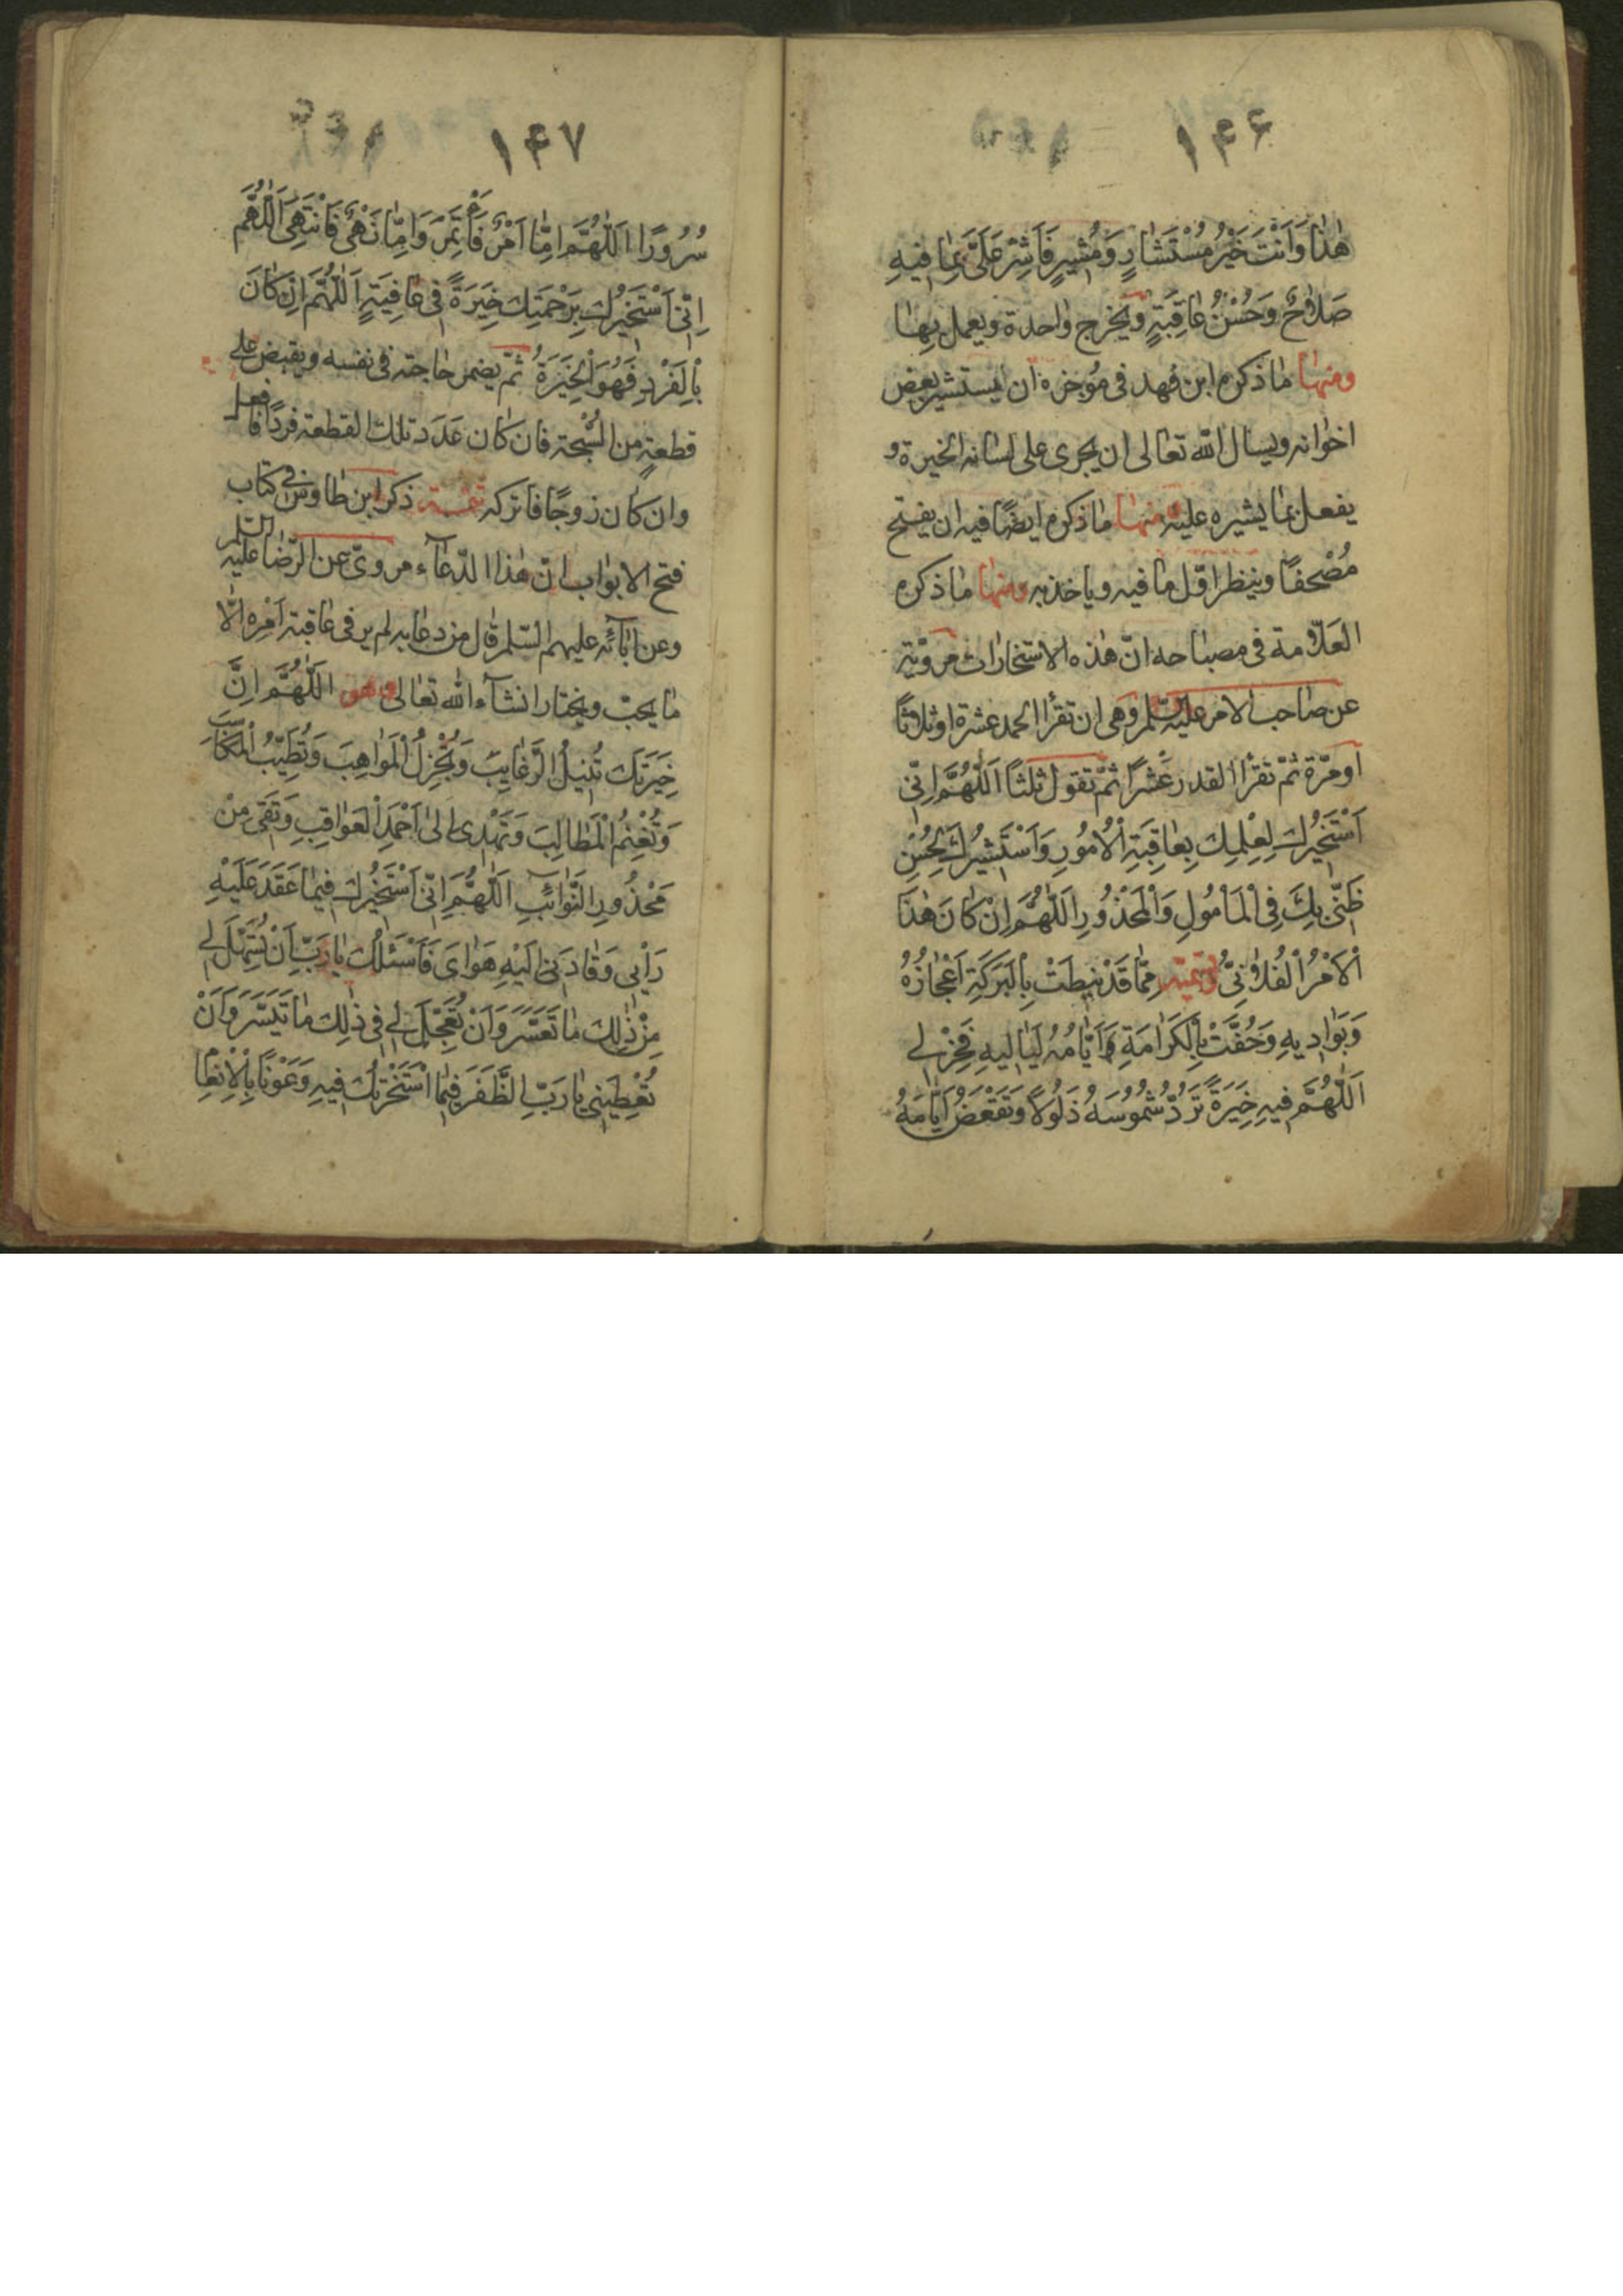 ۱۴۶
هٰذا وَاَنْتَ خَيْرُ مُسْتَشٰارٍ وَمُشيرٍ فَاَشِرْ عَلَىَّ بِمٰا فيهِ
صَلاٰحٌ وَحُسْنُ عٰاقِبَةٍ ويخرج وٰاحدة ويعمل بِهٰا
ومنهٰا مٰا ذكره ابن فهد فى مُوجزه ان يستشير بعض
اخوٰانه ويسال اللّه تعٰالى ان يجرى على لسٰانه الخيرة و
يفعل بمٰا يشيره عليه ومنهٰا مٰا ذكره ايضًا فيه ان يفتح
مُصْحفًا وينظر اوّل مٰا فيه وياخذ به ومنهٰا مٰا ذكره
العَلاّمة فى مصبٰاحه انّ هٰذه الاستخٰارات مرويّة
عن صٰاحب الامر عليه السّلم وهى ان تقرأ الحمد عشرة او ثلاثًا
او مرّة ثمّ تقرأ القدر عَشْرًا ثمّ تقول ثلثًا اَللّٰهُمَّ اِنّى
اَسْتَخيرُكَ لِعِلْمِكَ بِعٰاقِبَةِ اْلاُمُورِ وَاَسْتَشيرُكَ لِحُسْنِ
ظَنّى بِكَ فِى الْمَاْمُولِ وَالْمَحْذُورِ اَللّٰهُمَّ اِنْ كٰانَ هٰذَا
اْلاَمْرُ الْفُلاٰنِىُّ وتسميه مِمّٰا قَدْ نيطَتْ بِالْبَرَكَةِ اَعْجٰازُهُ
وَبَوٰاديهِ وَحُفَّتْ بِالْكَرٰامَةِ اَيّٰامُهُ لَيٰاليهِ فَخِرْ لى
اَللّٰهُمَّ فيهِ خِيَرَةً تَرُدُّ شُمُوسَهُ ذَلُولاً وَتَقْعَضُ اَيّٰامَهُ
۱۴۷
سُرُورًا اَللّٰهُمَّ اِمّٰا اَمْرٌ فَاْتَمِرَ وَاِمّٰا نَهْىٌ فَاَنْتَهِىَ اَللّٰهُمَّ
اِنّى اَسْتَخيرُكَ بِرَحْمَتِكَ خِيَرَةً فى عٰافِيَةٍ اَللّٰهُمَّ اِنْ كٰانَ
بِالْفَرْدِ فَهُوَ الْخِيَرَةُ ثمّ يضمر حٰاجته فى نفسه ويقبض على
قطعةٍ من السُّبحة فان كٰان عَدَد تلك القطعة فردًا فافعل
وان كٰان زوجًا فاتركه تتمّة ذكر ابن طٰاوس فى كتٰاب
فتح الابوٰاب انّ هٰذا الدّعٰآء مروىّ عن الرّضٰا عليه السّلم
وعن اٰبٰآئه عليهم السّلم قٰال من دعٰا به لم ير فى عٰاقبة اَمْره الاّ
مٰا يحبّ ويختار انشآء اللّه تعٰالى وهو اَللّٰهُمَّ اِنَّ
خِيَرَتَكَ تُنيلُ الرَّغٰايِبَ وَتُجْزِلُ الْمَوٰاهِبَ وَتُطَيِّبُ الْمَكٰاسِبَ
وَتُغْنِمُ الْمَطٰالِبَ وَتَهْدى اِلىٰ اَحْمَدِ الْعَوٰاقِبِ وَتَقى مِنْ
مَحْذُورِ النَّوٰائِبِ اَللّٰهُمَّ اِنّى اَسْتَخيرُكَ فيمٰا عَقَدَ عَلَيْهِ
رَاْيى وَقٰادَنى اِلَيْهِ هَوٰاىَ فَاَسْئَلُكَ يٰا رَبِّ اَنْ تُسَهِّلَ لى
مِنْ ذٰلِكَ مٰا تَعَسَّرَ وَاَنْ تُعَجِّلَ لى فى ذٰلِكَ مٰا تَيَسَّرَ وَاَنْ
تُعْطِيَنى يٰا رَبِّ الظَّفَرَ فيمٰا اسْتَخَرْتُكَ فيهِ وَعَوْنًا بِاْلاِنْعٰامِ